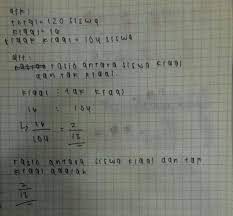 dik:
total = 120 siswa
kidal = 16
tidak kidal = 104 siswa
dit:
rasio antara siswa kidal
dan tak kidal.
kidal : tak kidal
16 : 104
↳ 16/104 = 2/13
rasio antara siswa kidal dan tak
kidal adalah
2/13